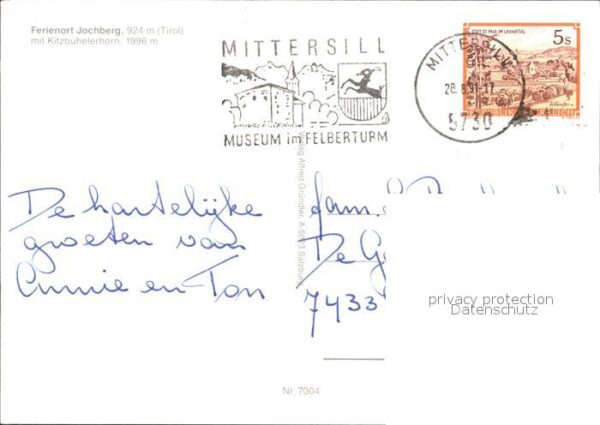 Ferienort Jochberg, 924 m (Tirol)
mit Kitzbühelerhorn, 1996 m
MITTERSILL
MUSEUM im FELBERTURM
MITTERSILL
28.8.91-17
5730
STIFT ST. PAUL IM LAVANTTAL
5 S
REPUBLIK ÖSTERREICH
De hartelijke
groeten van
Annie en Ton
Verlag Alfred Gründler, Salzburg
fam.
De
7433
privacy protection
Datenschutz
Nr. 7004